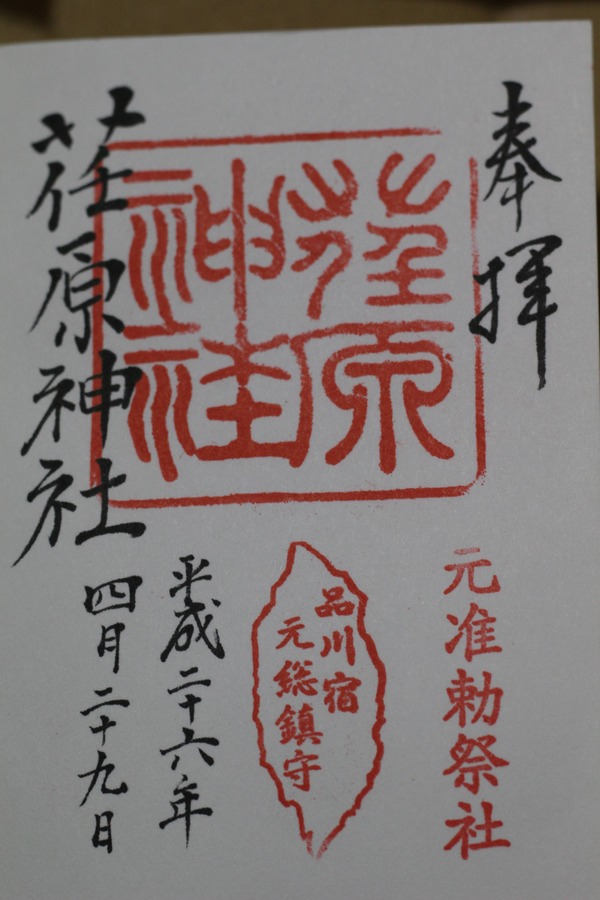 奉拝
元准勅祭社
荏原神社
品川宿
元総鎮守
平成二十六年
四月二十九日
荏原神社